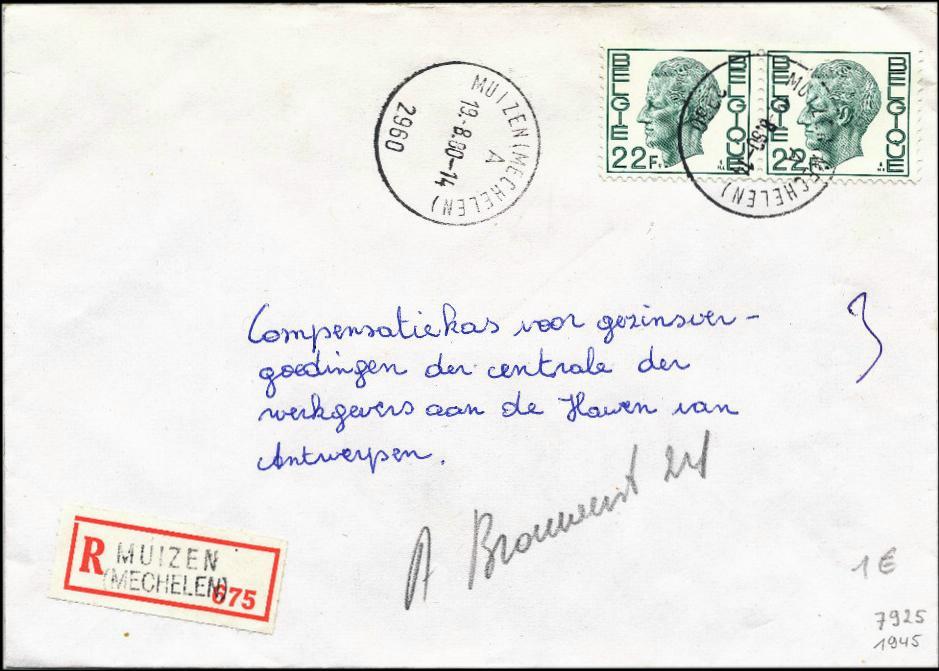 MUIZEN (MECHELEN)
19.-8.80-14
A
2960
BELGIE BELGIQUE
22F
BELGIE BELGIQUE
22F
Compensatiekas voor gezinsver-
goedingen der centrale der
werkgevers aan de Haven van
Antwerpen.
A
24
R MUIZEN
(MECHELEN)
675
1€
7925
1945